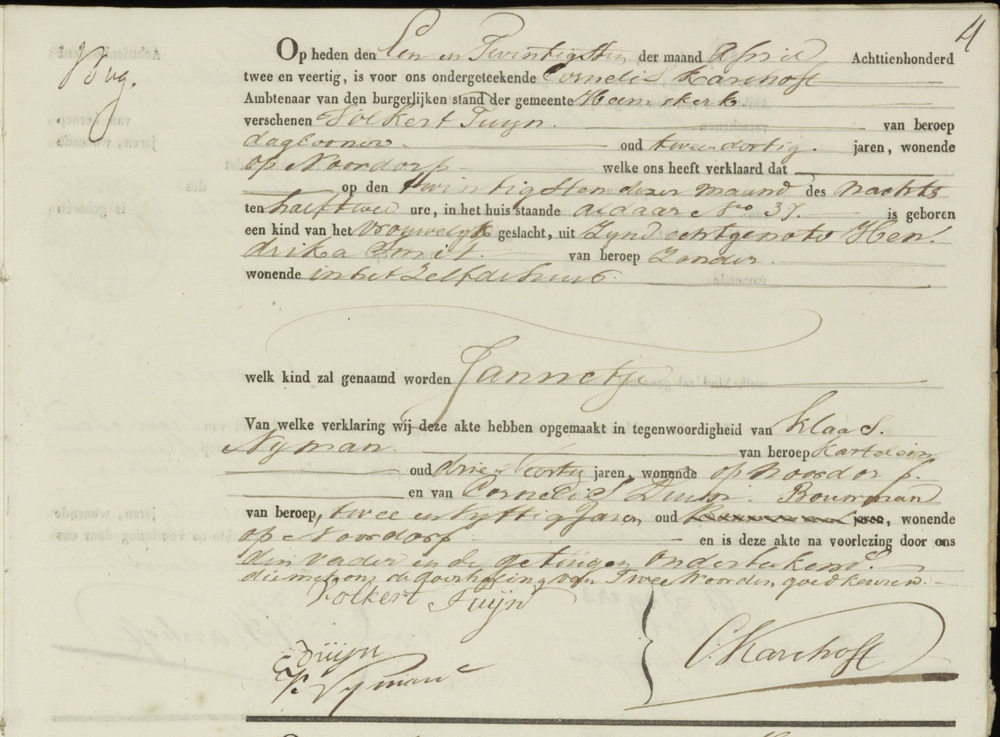 4
Op heden den Een en Twintigsten der maand April Achttienhonderd
twee en veertig, is voor ons ondergeteekende Cornelis Karehoff
Ambtenaar van den burgerlijken stand der gemeente Heemskerk
verschenen Volkert Tuijn van beroep
dagloonder oud twee dortig jaren, wonende
op Noordorp welke ons heeft verklaard dat
op den twintigsten dezer maand des nachts
ten half twee ure, in het huis staande aldaar No 37. is geboren
een kind van het vrouwelyk geslacht, uit Zynd echtgenote Hen
drika Smit. van beroep Zonder
wonende in het Zelfde huis.
welk kind zal genaamd worden Jannetje
Van welke verklaring wij deze akte hebben opgemaakt in tegenwoordigheid van Klaas
Nyman van beroep Kastelein
oud drie en jaren, wonende op Noordorp.
en van Cornelis Duin Bouwman
van beroep, twee en vyftig Jaren oud jaren, wonende
op Noordorp en is deze akte na voorlezing door ons
den vader en de getuigen onderteekend.
die met ons de doorhaling van Twee woorden goedkeuren.
Volkert Tuijn
C Duijn
K. Nyman
C. Karehoff